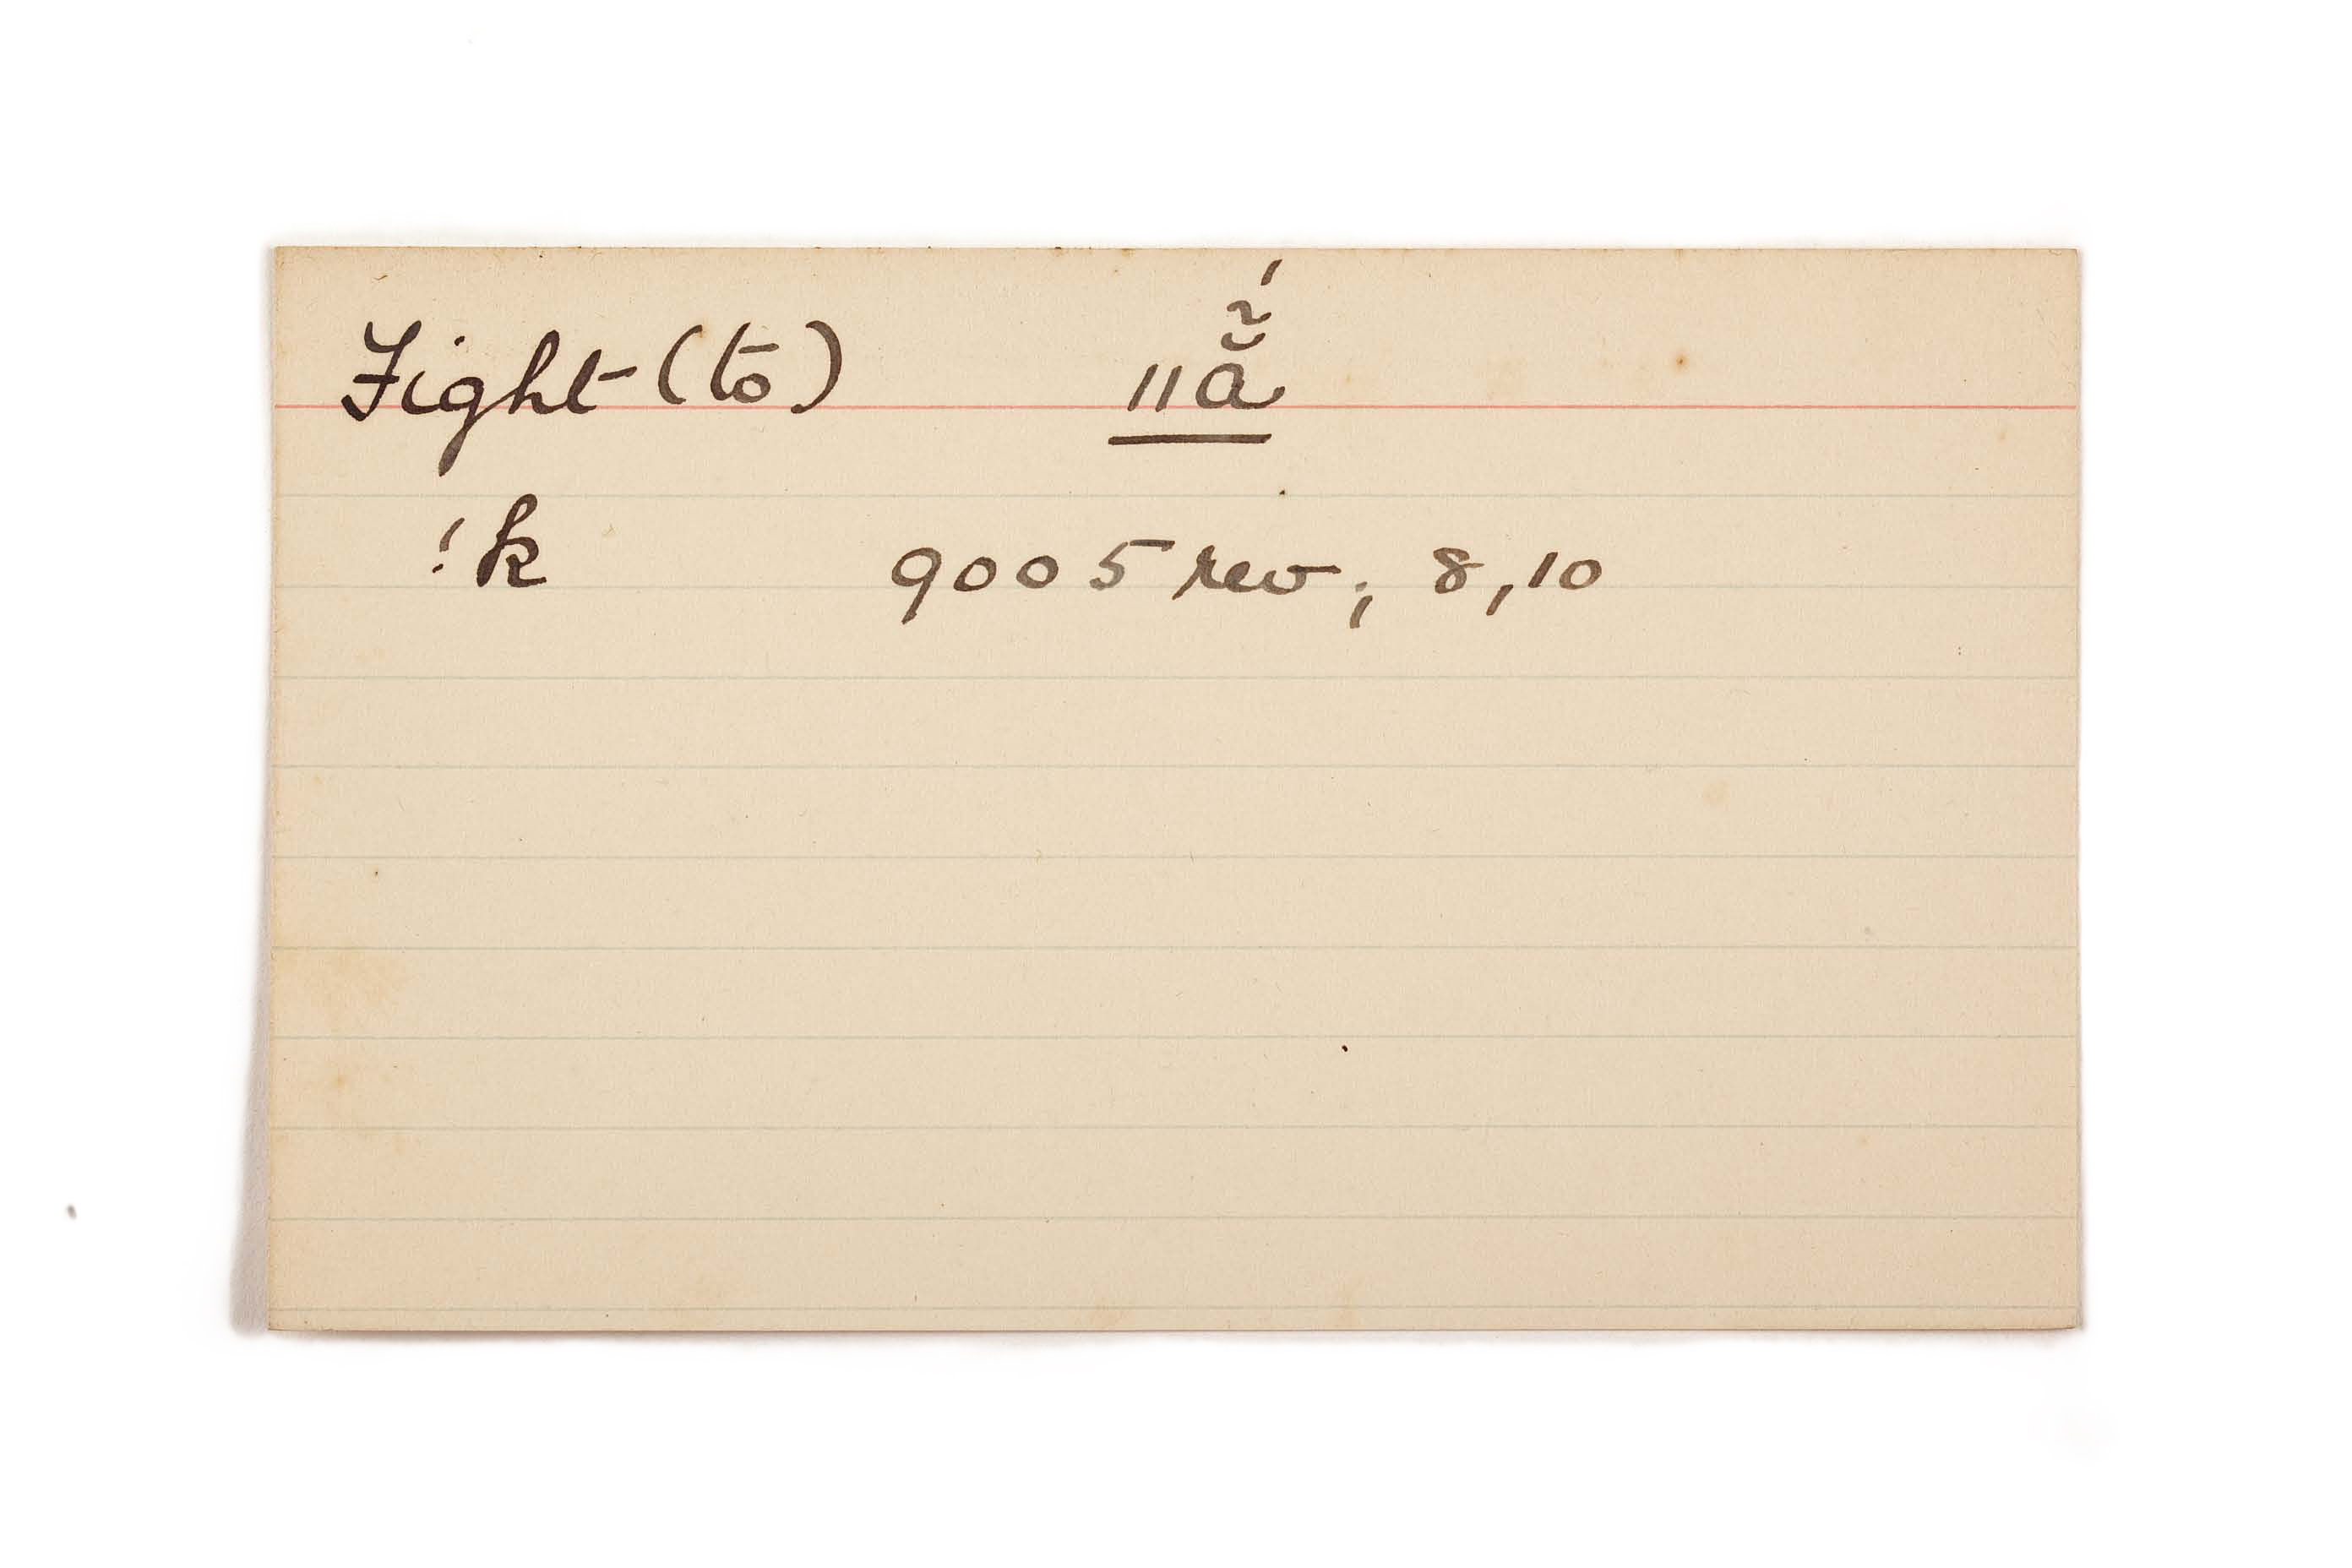 Fight (to) ǁẵ́
!k 9005 rev; 8, 10